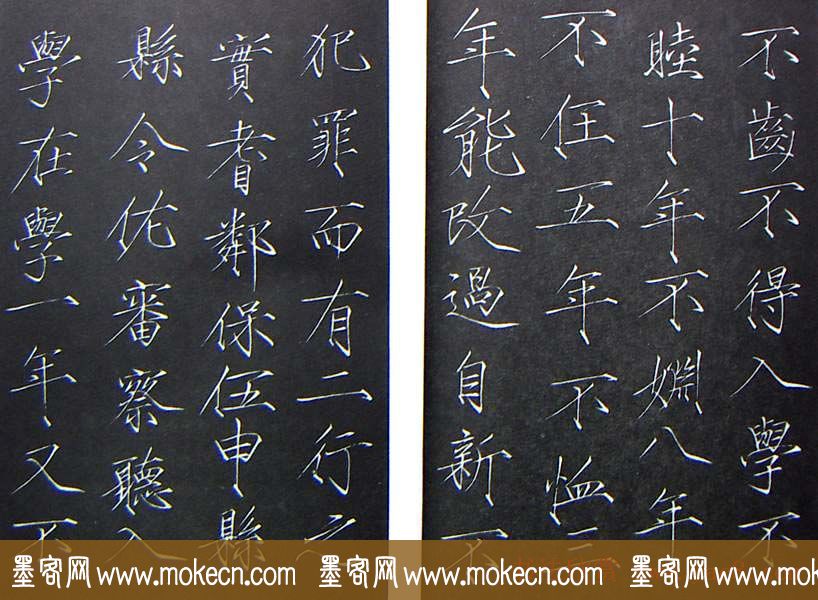 不齒不得入學不
睦十年不婣八年
不任五年不恤三
年能改過自新不
犯罪而有二行之
實耆鄰保伍申縣
縣令佐審察聽入
學在學一年又不
墨客网 www.mokecn.com 墨客网 www.mokecn.com